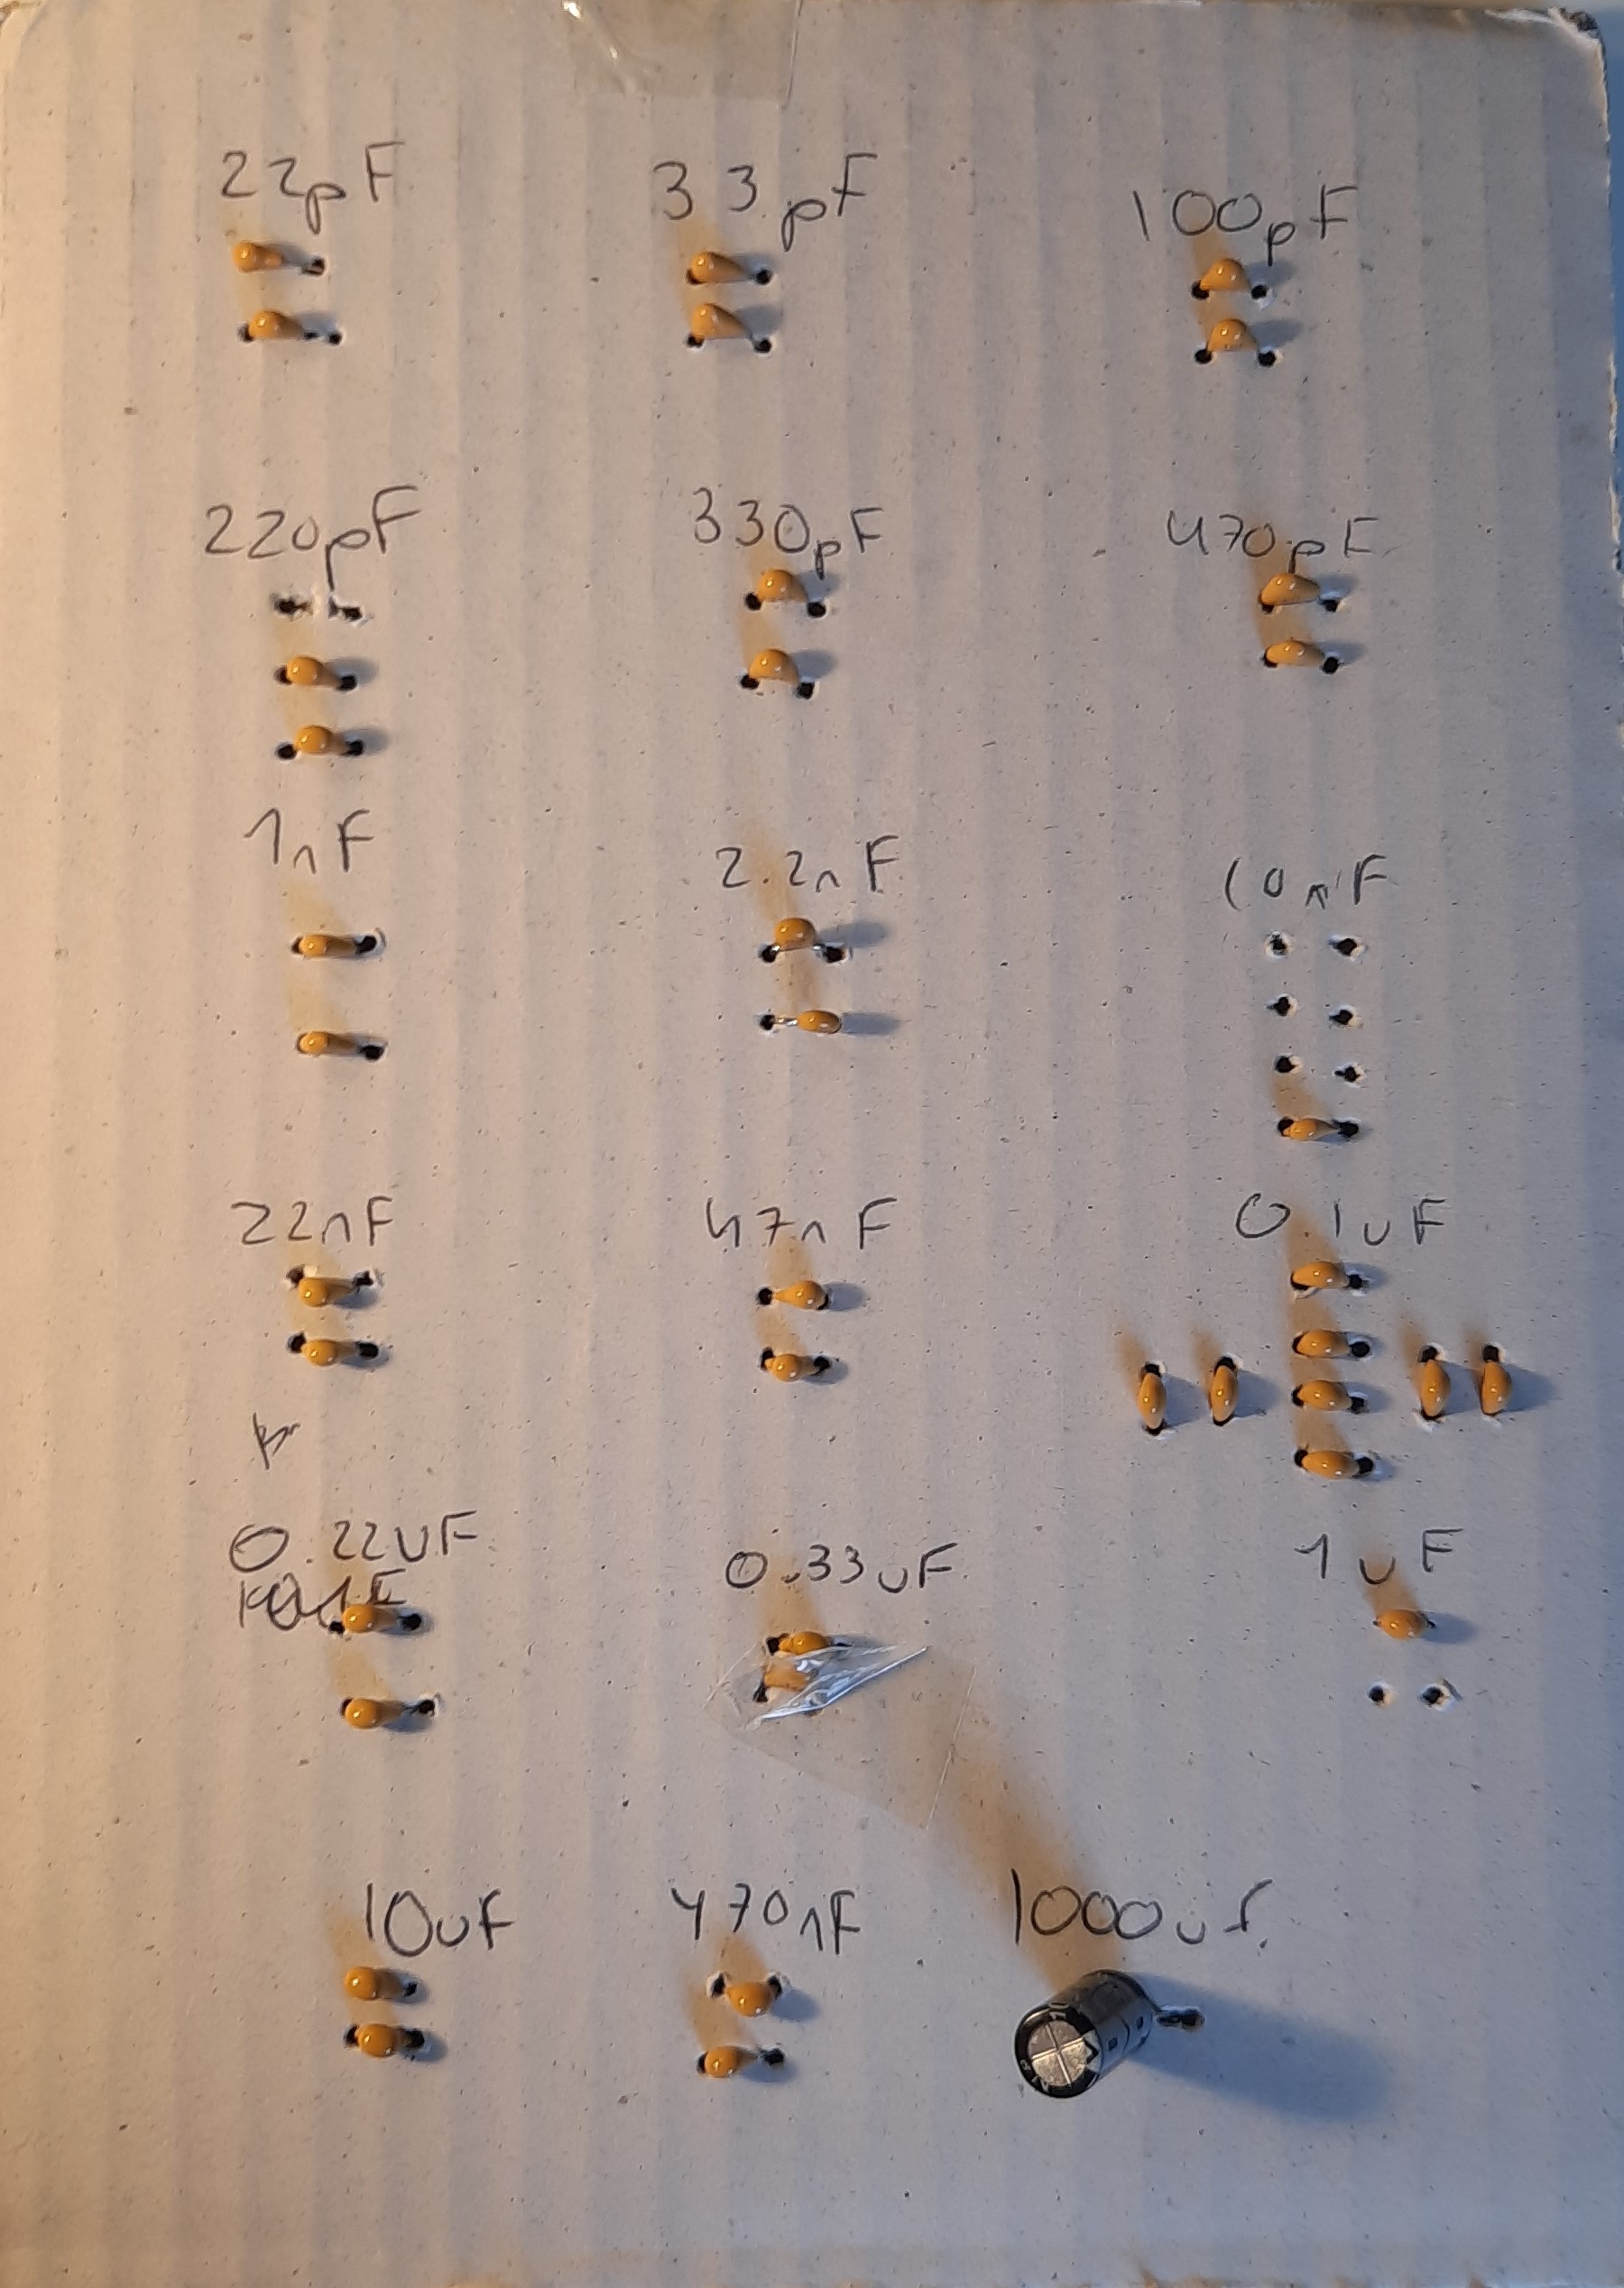 22pF
33pF
100pF
220pF
330pF
470pF
1nF
2.2nF
10nF
22nF
47nF
0.1uF
0.22uF
0.33uF
1uF
10uF
470nF
1000uF